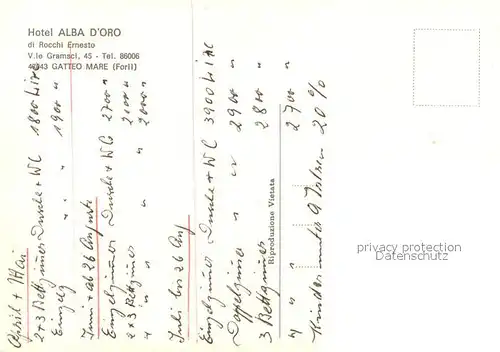 Hotel ALBA D'ORO
di Rocchi Ernesto
V.le Gramsci, 45 - Tel. 86006
47043 GATTEO MARE (Forlì)
April + Mai
2+3 Bettzimmer Dusche + WC 1800 Lire
Einzelz " " 1900 "
Juni + ab 26 August
Einzelzimmer Dusche + WC 2700 "
2 x 3 Bettzimmer " 2100 "
" " 2000 "
Juli bis 26 Aug
Einzelzimmer Dusche + WC 3900 Lire
Doppelzimmer " " 2900 "
3 Bettzimmer 2800 "
4 " " 2700 "
Kinder unter 9 Jahren 20%
Riproduzione Vietata
privacy protection
ansichtskarten